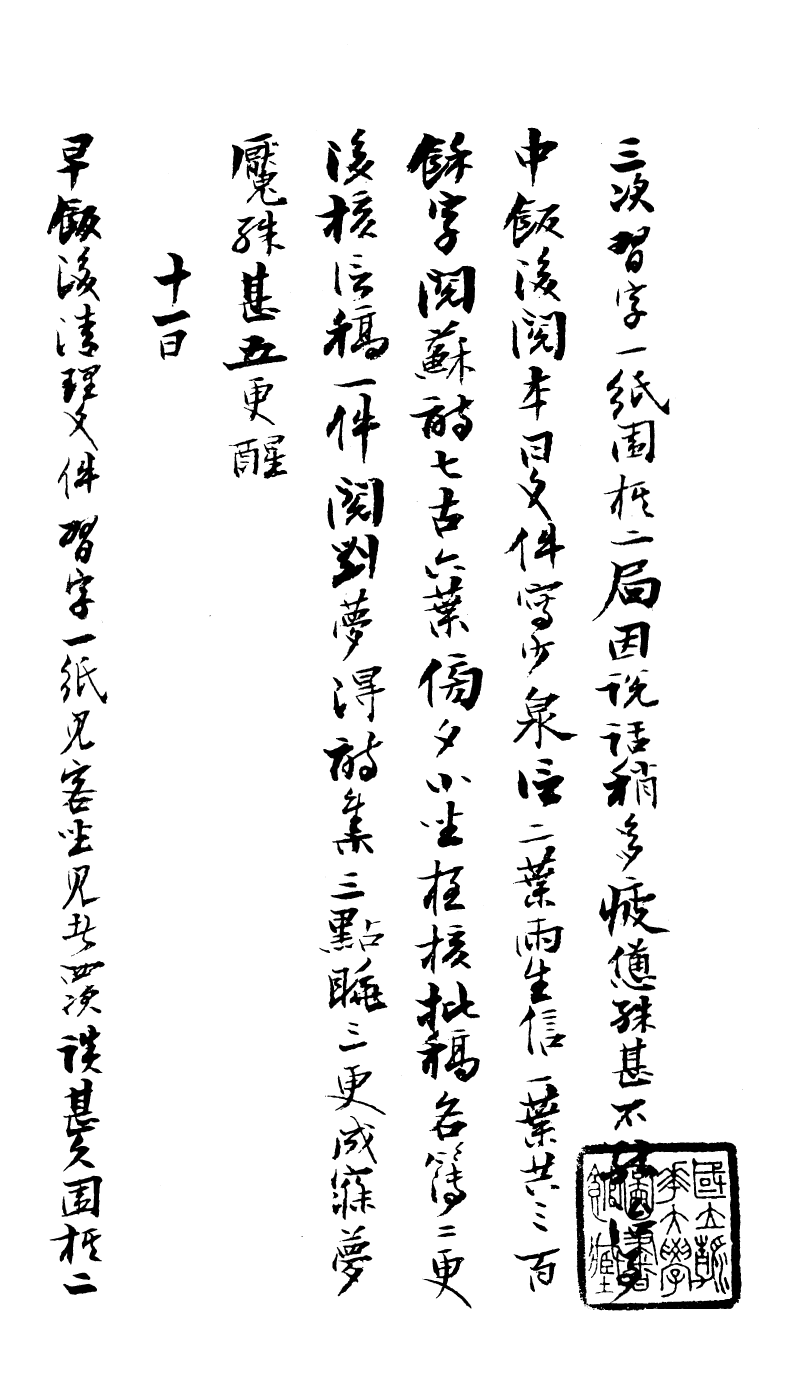 三次習字一紙圍棋二局因說話稍多疲憊殊甚不
中飯後閱本日文件寫少泉信二葉雨生信一葉共三百
餘字閱蘇詩七古六葉傍夕小坐夜核批稿各簿二更
後核信稿一件閱劉夢得詩集三點睡三更成寐夢
魘殊甚五更醒
十一日
早飯後清理文件習字一紙見客坐見者四次談甚久圍棋二
國立政
治大學
圖書
館藏